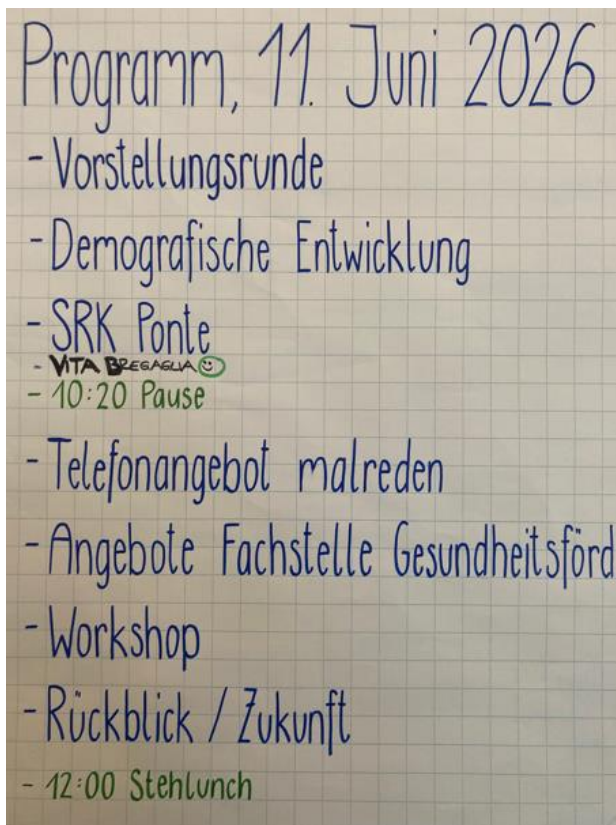 Programm, 11. Juni 2026
- Vorstellungsrunde
- Demografische Entwicklung
- SRK Ponte
- VITA BREGAGLIA
- 10:20 Pause
- Telefonangebot malreden
- Angebote Fachstelle Gesundheitsförd
- Workshop
- Rückblick / Zukunft
- 12:00 Stehlunch